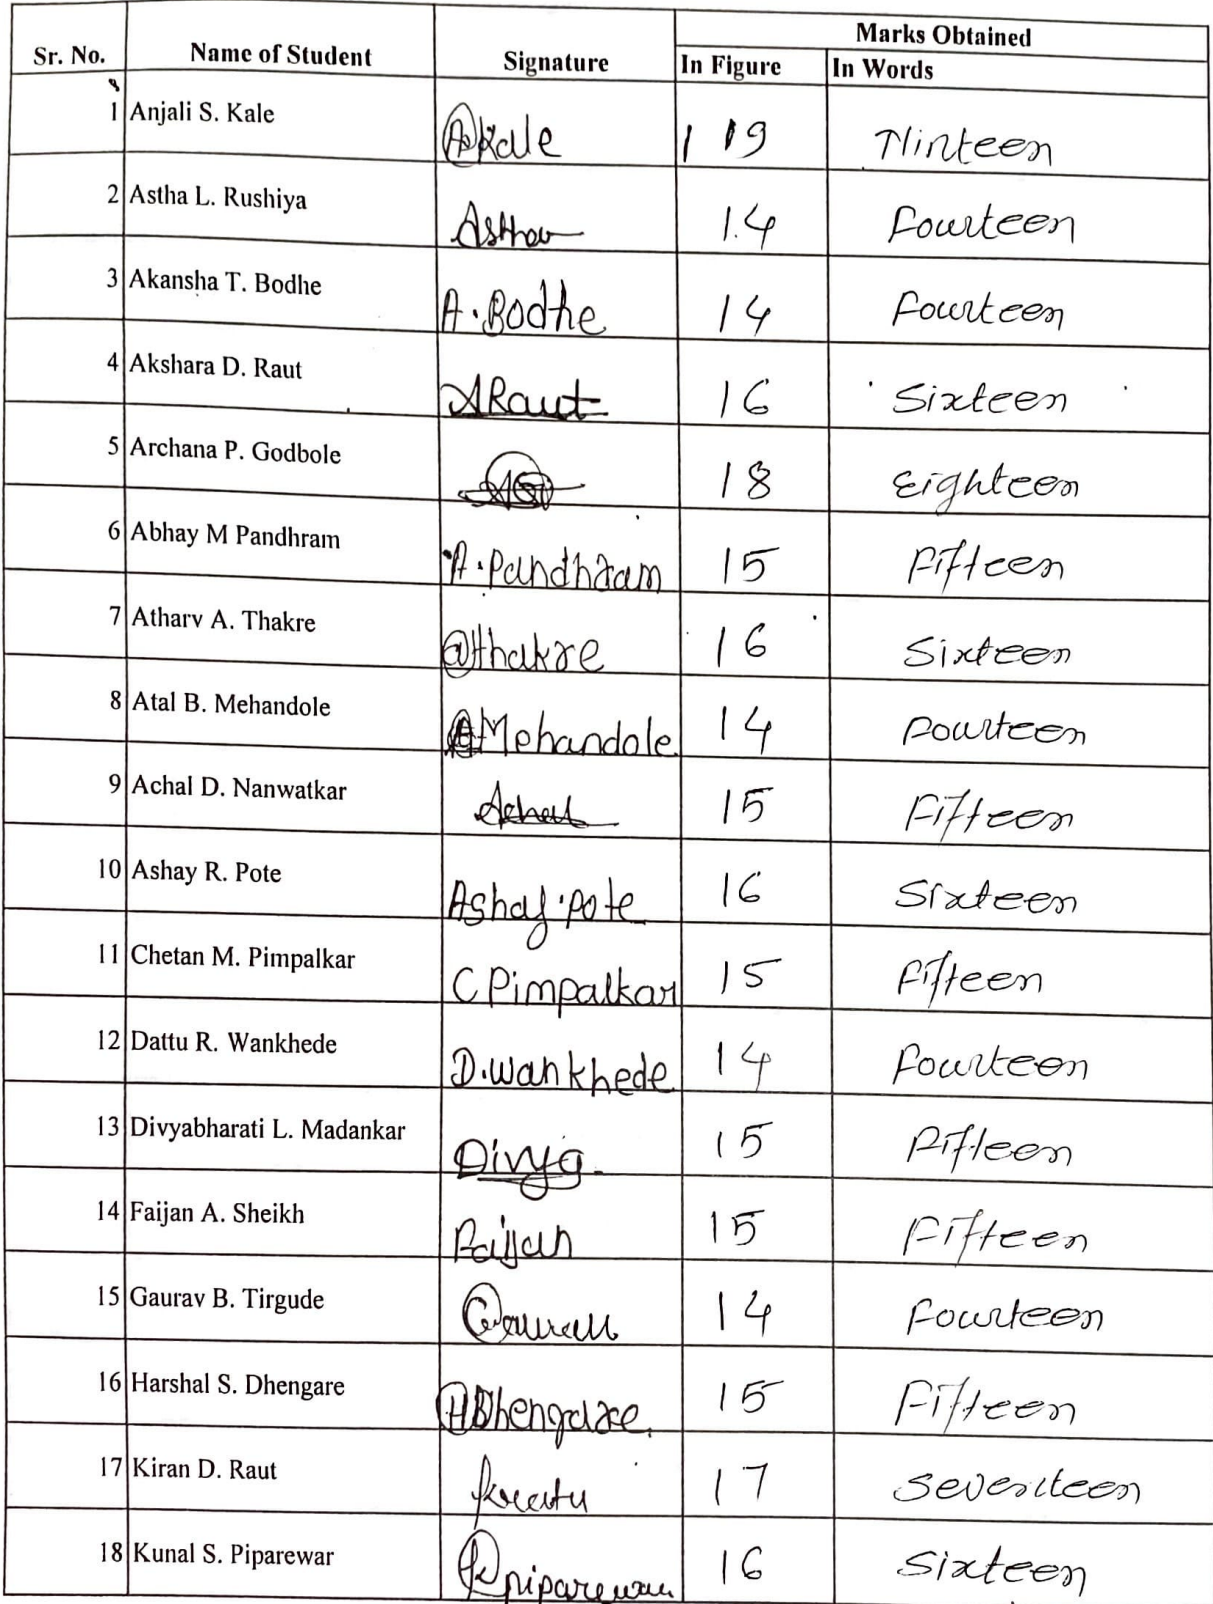 Sr. No. Name of Student Signature Marks Obtained
In Figure In Words
1 Anjali S. Kale A Kale 19 Ninteen
2 Astha L. Rushiya Astha 14 Fourteen
3 Akansha T. Bodhe A. Bodhe 14 Fourteen
4 Akshara D. Raut ARaut 16 Sixteen
5 Archana P. Godbole 18 Eighteen
6 Abhay M Pandhram A. Pandhram 15 Fifteen
7 Atharv A. Thakre @thakre 16 Sixteen
8 Atal B. Mehandole Mehandole 14 Fourteen
9 Achal D. Nanwatkar Achal 15 Fifteen
10 Ashay R. Pote Ashay. pote 16 Sixteen
11 Chetan M. Pimpalkar C Pimpalkar 15 Fifteen
12 Dattu R. Wankhede D. wankhede 14 Fourteen
13 Divyabharati L. Madankar Divya 15 Fifteen
14 Faijan A. Sheikh Faijan 15 Fifteen
15 Gaurav B. Tirgude Gaurav 14 Fourteen
16 Harshal S. Dhengare HDhengare. 15 Fifteen
17 Kiran D. Raut 17 Seventeen
18 Kunal S. Piparewar Kpiparewar 16 Sixteen